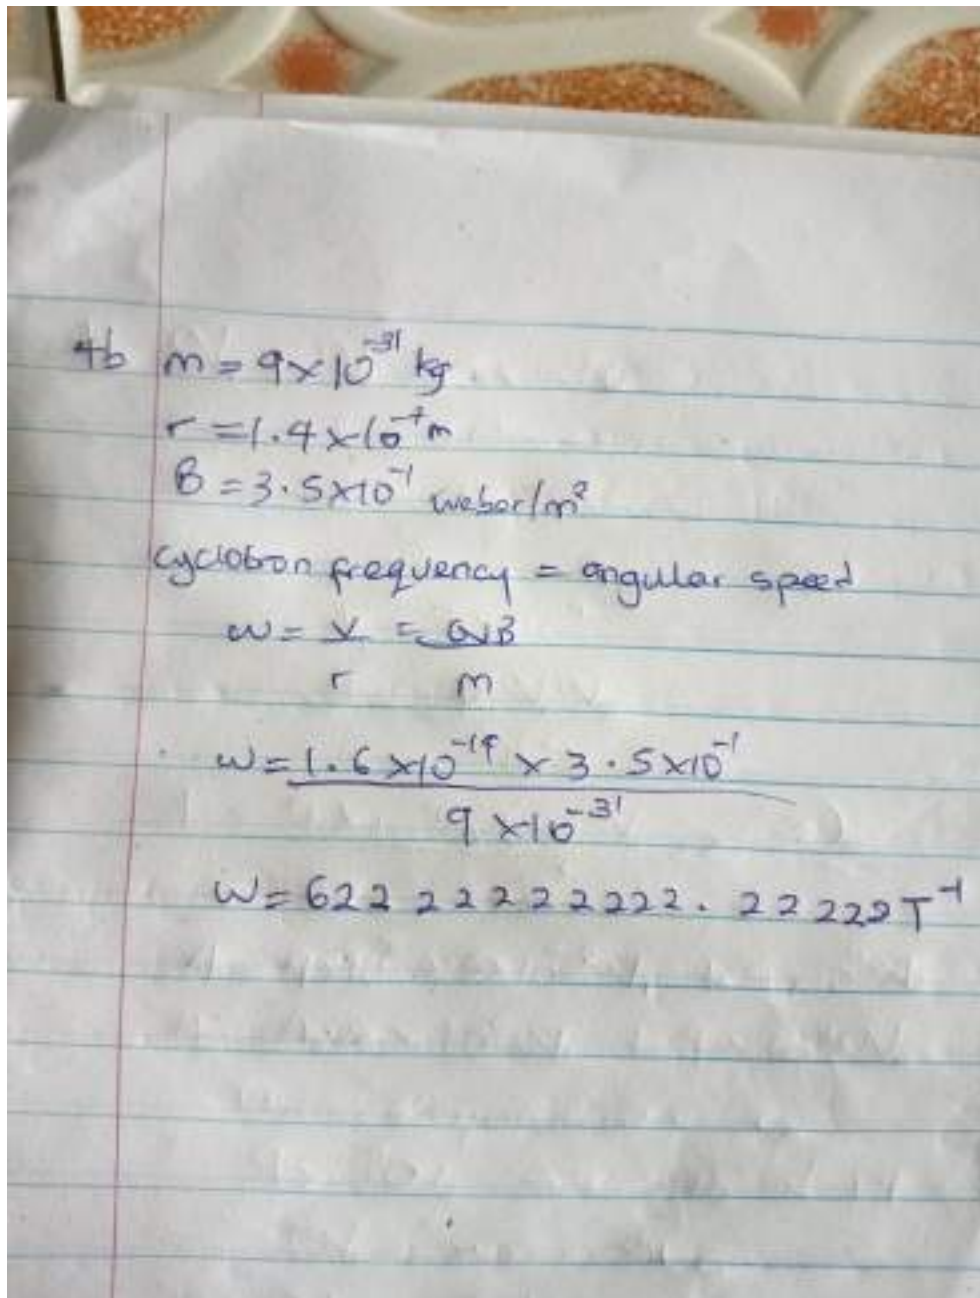 4b m = 9×10⁻³¹ kg.
r = 1.4×10⁻⁷ m
B = 3.5×10⁻¹ weber/m²
cyclotron frequency = angular speed
w = v/r = qvB/m
w = 1.6×10⁻¹⁹ × 3.5×10⁻¹
9×10⁻³¹
w = 62222222222.22222T⁻¹